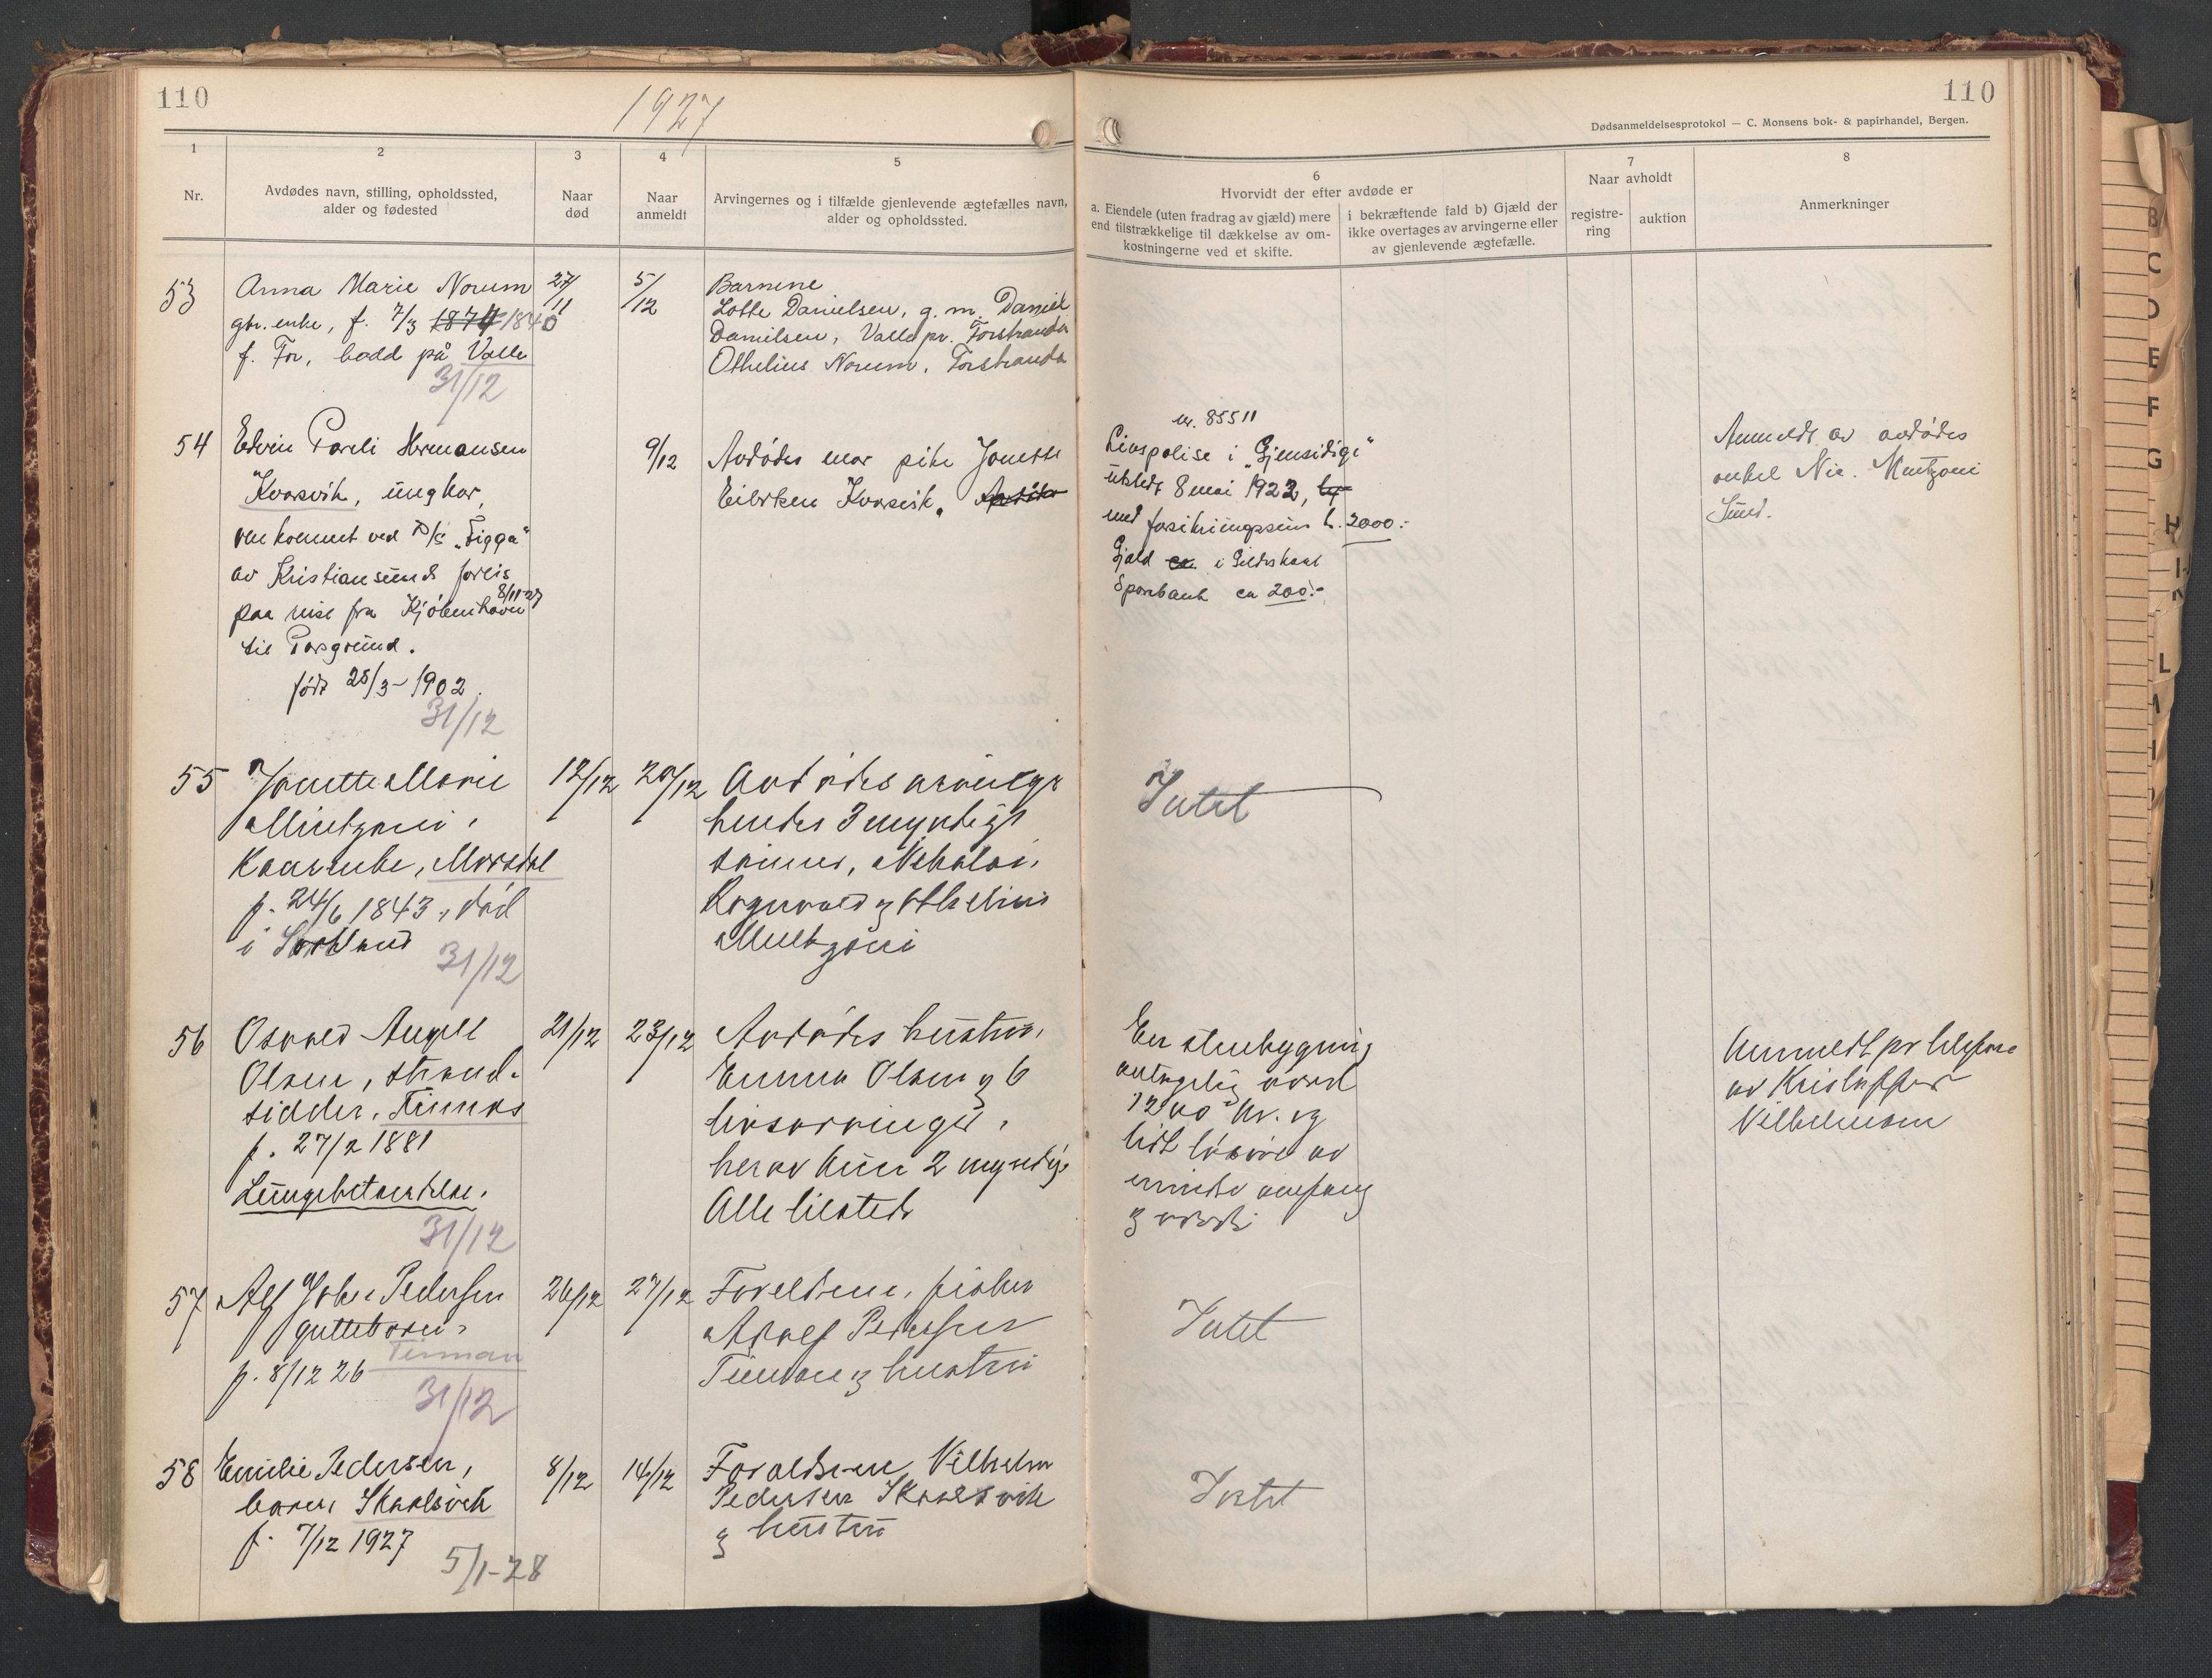 110
1927
110
Dødsanmeldelsesprotokol — C. Monsens bok- & papirhandel, Bergen.
1
Nr.
2
Avdødes navn, stilling, opholdssted,
alder og fødested
3
Naar
død
4
Naar
anmeldt
5
Arvingernes og i tilfælde gjenlevende ægtefælles navn,
alder og opholdssted.
6
Hvorvidt der efter avdøde er
a. Eiendele (uten fradrag av gjæld) mere
end tilstrækkelige til dækkelse av om-
kostningerne ved et skifte.
i bekræftende fald b) Gjæld der
ikke overtages av arvingerne eller
av gjenlevende ægtefælle.
7
Naar avholdt
registre-
ring
auktion
8
Anmerkninger
53
Anna Marie Norum
gbr. enke, f. 7/3 1874 1840
f. For, bodd på Valle
31/12
27/11
5/12
Barnene
Lotte Danielsen, g. m. Daniel
Danielsen, Valle pr. Forstranda
Othelius Norum, Forstranda
54
Edvin Pareli Hermansen
Kvarsvik, ungkar,
omkommet ved D/S "Sigga"
av Kristiansunds forlis
8/11-27
paa reise fra Kjøbenhavn
til Porsgrund.
født 25/3-1902.
31/12
9/12
Avdødes mor pike Jonette
Eilertsen Kvarsvik. Avdøde
nr. 85511
Livspolise i "Gjensidige"
utstedt 8 mai 1922,
med forsikringssum k. 2000.-
Gjæld ca. i Gildeskaal
Sparebank ca 200.-
Anmeldt av avdødes
onkel Nic. Muntzoni
Sund.
55
Jonette Marie
Mintzoni,
Kaarenke, Morsdal
f. 24/6 1843, død
i Sørland
31/12
12/12
20/12
Avdødes arvinger
hendes 3 myndige
sønner, Nikolai,
Ragnvald og Othelius
Muntzoni
Intet
56
Osvald Angell
Olsen, strand-
sidder, Finnes
f. 27/2 1881
Lungebetændelse.
31/12
21/12
23/12
Avdødes hustru,
Emma Olsen og 6
livsarvinger,
herav kun 2 myndige
Alle tilstede
En stuebygning
antagelig værd
1200 kr. og
lidt løsøre av
mindre omfang
og værdi
Anmeldt pr telefon
av Kristoffer
Vilhelmsen
57
Alf Johan Pedersen
guttebarn,
Finman
f. 8/12 26
31/12
26/12
27/12
Foreldrene, fisker
Adolf Pedersen
Finman og hustru
Intet
58
Emilie Pedersen,
barn, Skaalsvik
f. 7/12 1927
5/1-28
8/12
14/12
Forældrene Vilhelm
Pedersen Skaalsvik
og hustru
Intet
B
C
D
E
F
G
H
L